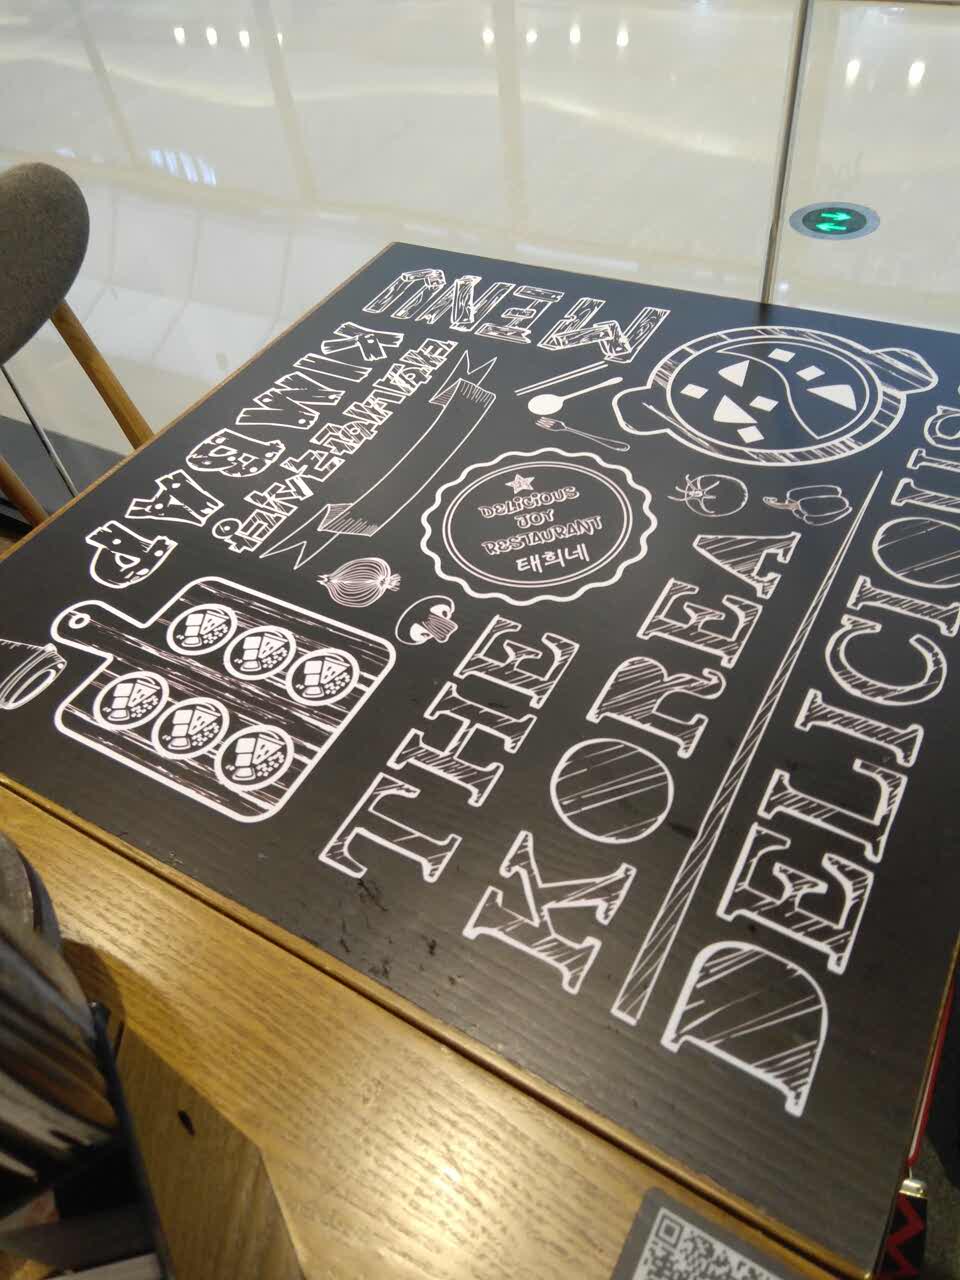 MENU
KIMBAP
DELICIOUS
JOY
RESTAURANT
태희네
THE
KOREA
DELICIOUS